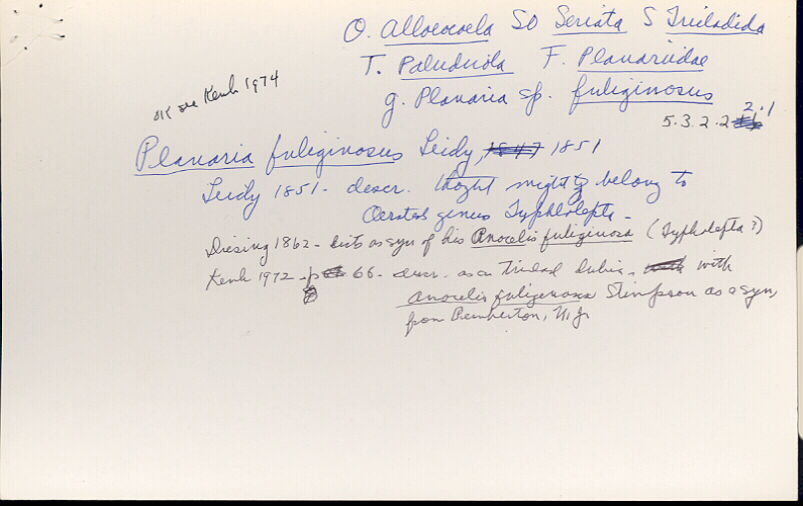 O. Alloeocoela SO Seriata S Tricladida
T. Paludicola F. Planariidae
g. Planaria sp. fuliginosus
OK see Kenk 1974
2.1
5.3.2.2
Planaria fuliginosus Leidy, 1847 1851
Leidy 1851- descr. thoght might belong to
Oersteds genus Typhlolepta -
Diesing 1862 - lists as syn of his Anocelis fuliginosa (Typholepta?)
Kenk 1972 - p 66 - descr. as a Triclad dubia, with
Anocelis fuligenosa Stimpson as a syn,
from Pemberton, N.J.